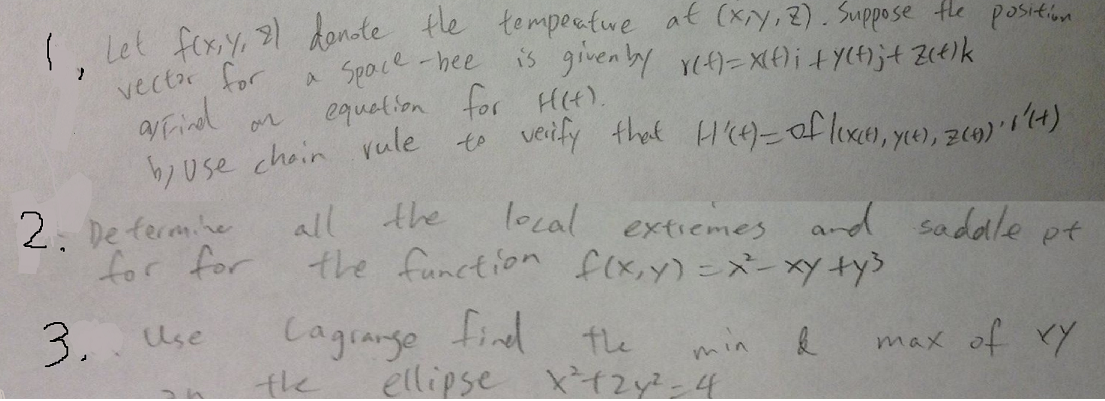 1, Let f(x,y,z) denote the temperature at (x,y,z). Suppose the position
vector for a space-bee is given by r(t)=x(t)i+y(t)j+z(t)k
a) Find an equation for H(t).
b) Use chain rule to verify that H'(t)=∇f|(x(t), y(t), z(t))·r'(t)
2. Determine all the local extremes and saddle pt
for for the function f(x,y)=x²-xy+y³
3. Use Lagrange find the min & max of xy
on the ellipse x²+2y²=4